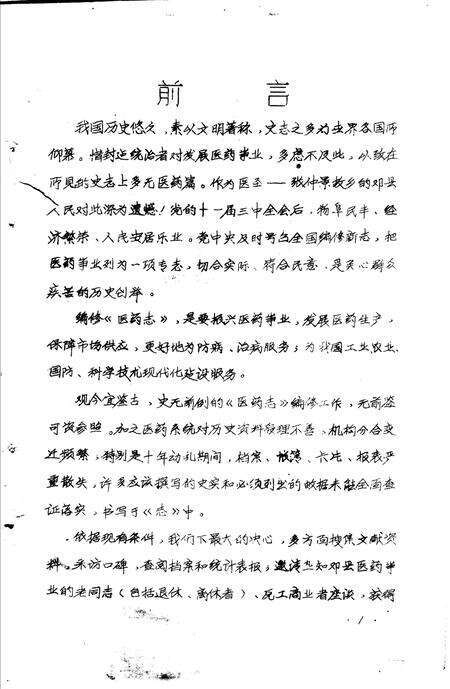 前言
我国历史悠久，素以文明著称，史志之多为世界各国所
仰慕。惜封建统治者对发展医药事业，多虑不及此，以致在
所见的史志上多无医药篇。作为医圣——张仲景故乡的邓县
人民对此深为遗憾！党的十一届三中全会后，物阜民丰、经
济繁荣、人民安居乐业。党中央及时号召全国编修新志，把
医药事业列为一项专志，切合实际、符合民意，是关心群众
疾苦的历史创举。
编修《医药志》，是要振兴医药事业，发展医药生产，
保障市场供应，更好地为防病、治病服务；为我国工业农业、
国防、科学技术现代化建设服务。
现今宜鉴古，史无前例的《医药志》编修工作，无前鉴
可资参照。加之医药系统对历史资料管理不善，机构分合变
迁频繁，特别是十年动乱期间，档案、帐簿、卡片、报表严
重散失，许多应该撰写的史实和必须列出的数据未能全面查
证落实，书写于《志》中。
依据现有条件，我们下最大的决心，多方面搜集文献资
料。采访口碑，查阅档案和统计表报；邀请知邓县医药事
业的老同志（包括退休、离休者）、死工商业者座谈，获得
1